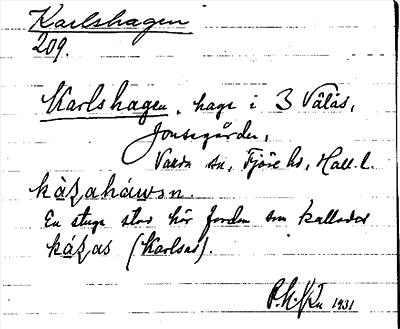 Karlshagen
209.
Karlshagen, hage i 3 Välås,
Jonsegården,
Varda sn, Fjäre hd, Hall. l.
kàꞎahåwsn.
En stuga stod här fordom som kallades
káꞎas (Karlsas).
1931